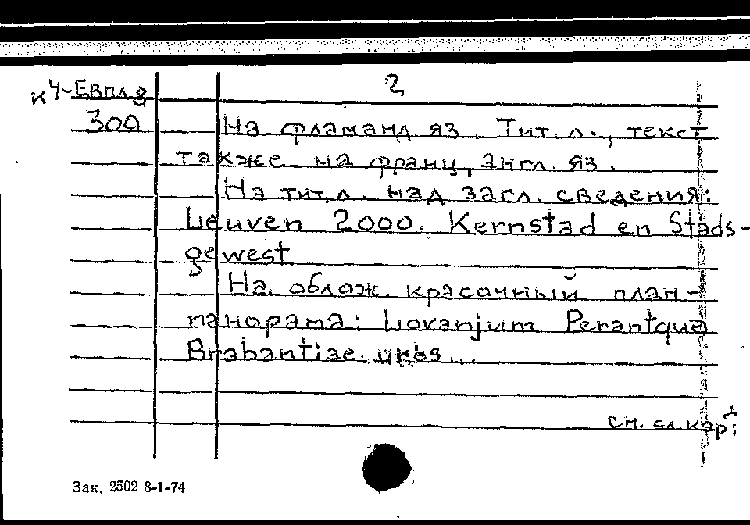 2
к Ч-Евпл.8
300
На фламанд. яз. Тит. л., текст
также на франц, англ. яз.
На тит. л. над загл. сведения:
Leuven 2000. Kernstad en Stads-
gewest
На облож. красочный план-
панорама: Lovanjum Perantqua
Brabantiae urbs...
см. сл. кар;
Зак. 2502 8-1-74